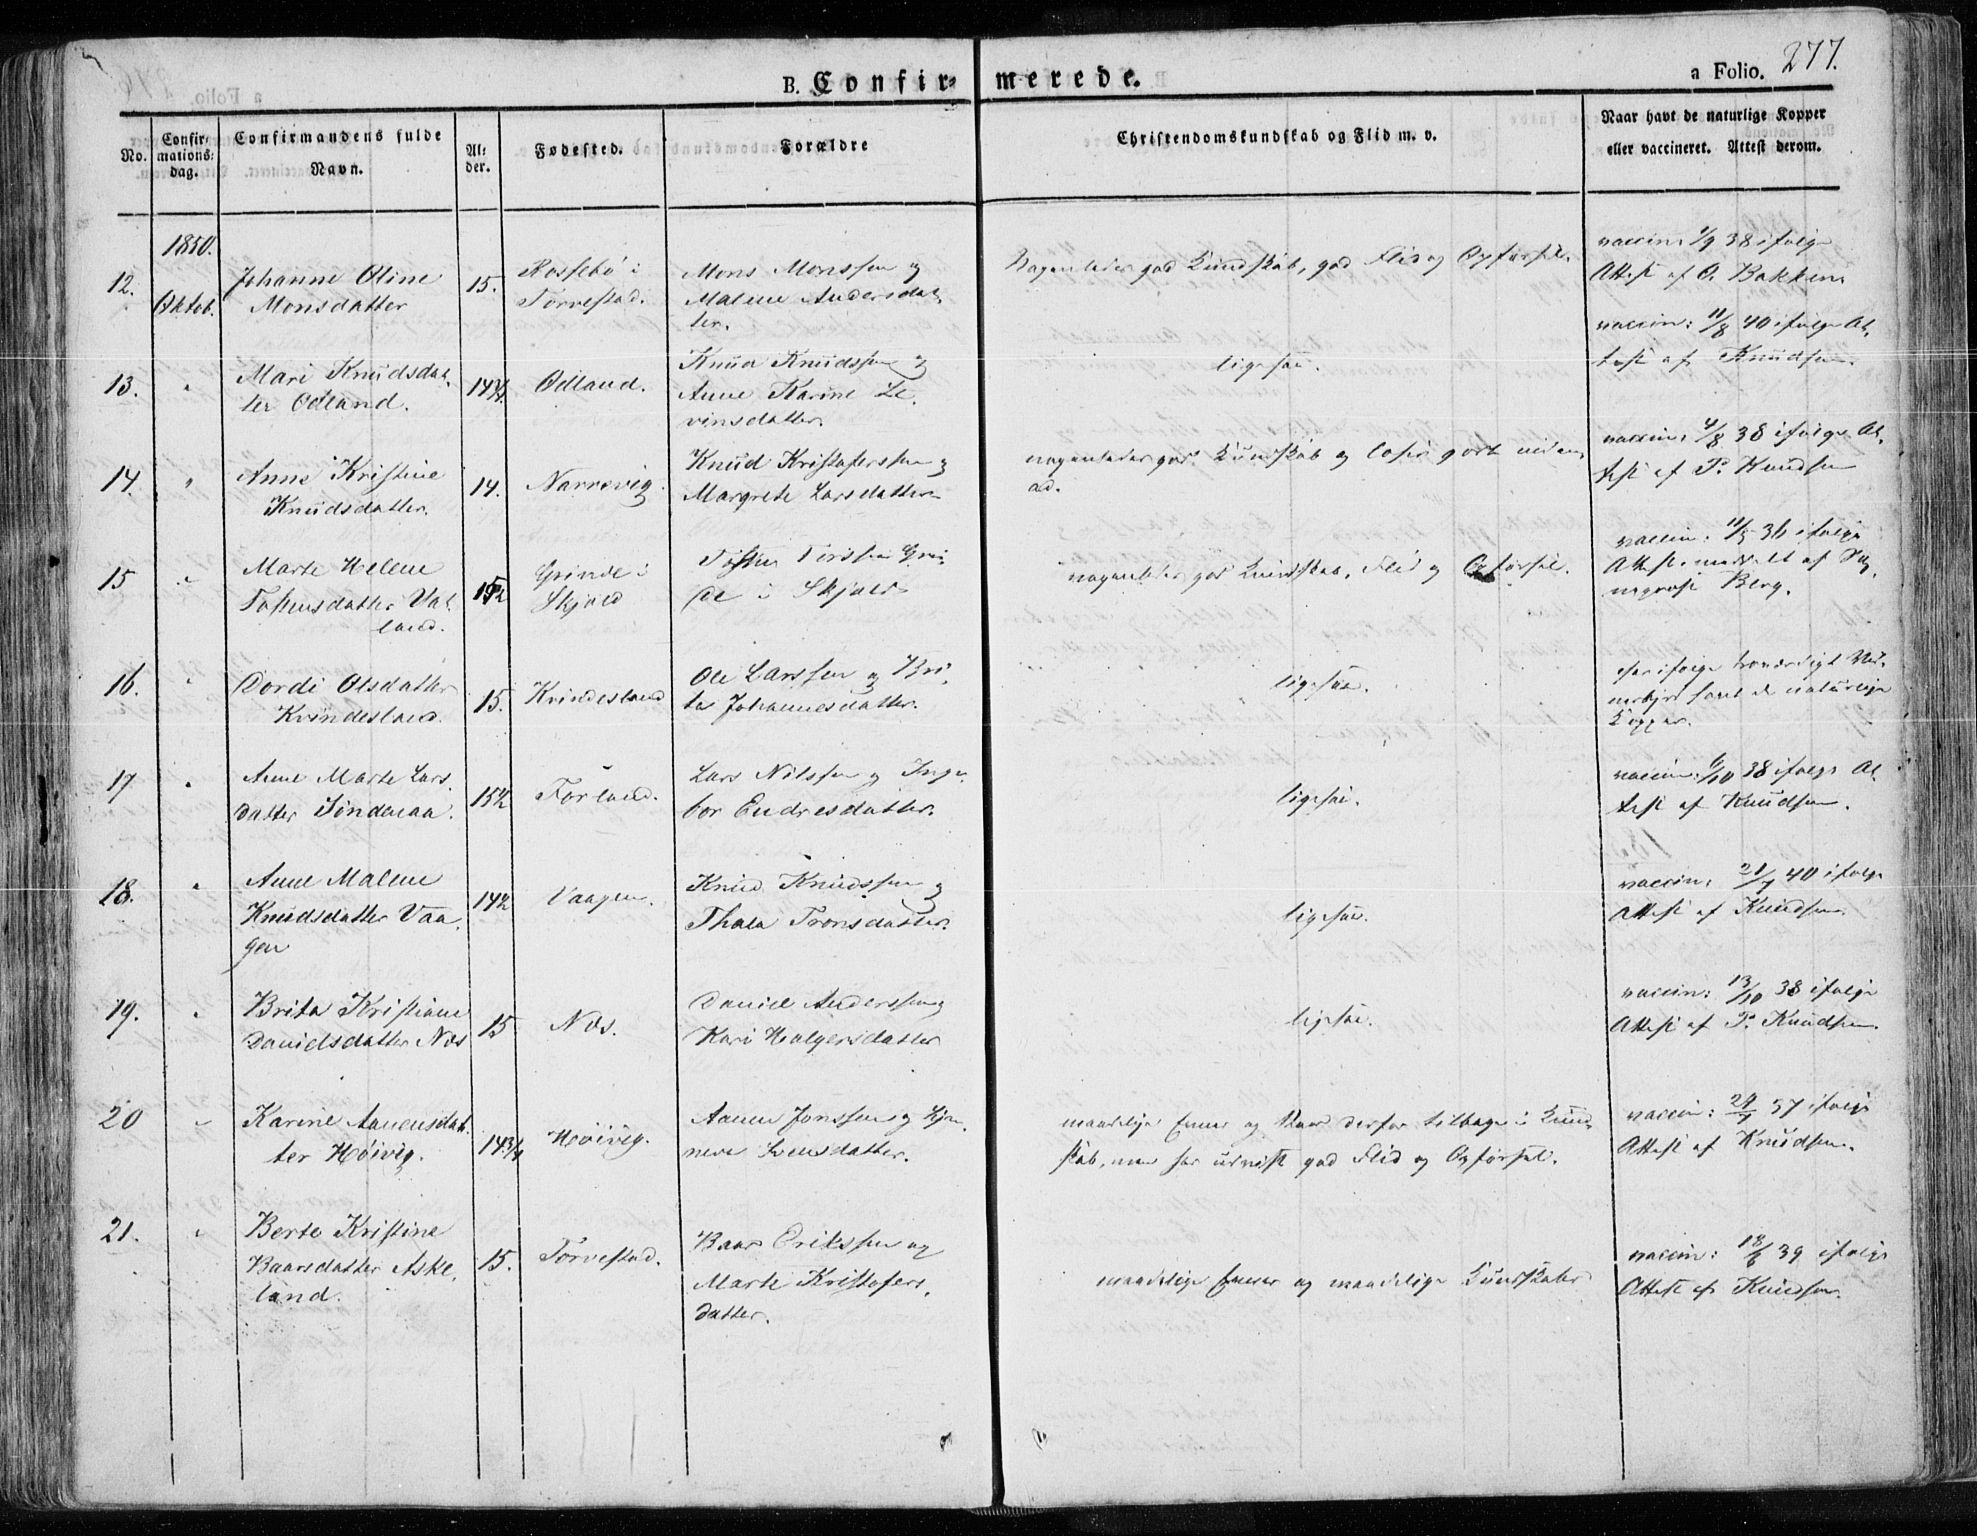 B. Confirmerede.
a Folio. 277.
No.
Confirmationsdag.
Confirmandens fulde Navn.
Alder.
Fødested.
Forældre
Christendomskundskab og Flid m. v.
Naar havt de naturlige Kopper eller vaccineret. Attest derom.
1850.
12.
Oktob.
Johanne Oline
Monsdatter
15.
Rossebø i
Torvestad.
Mons Monssen og
Malene Andersdat
ter.
Nogenledes god Kundskab, god Flid og Opførsel.
vaccin: 1/9 38 ifølge
Attest af O. Bakken
13.
"
Mari Knudsdat
ter Odland.
14 3/4.
Odland.
Knud Knudssen og
Anne Karine Le
vinsdatter.
ligesaa.
vaccin: 11/8 40 ifølge At
test af Knudsen.
14.
"
Anne Kristine
Knudsdatter.
14.
Narrevig
Knud Kristoferssen og
Margrete Larsdatter
nogenledes god Kundskab og
vaccin: 4/8 38 ifølge At
test af P. Knudsen
15
"
Marte Helene
Tostensdatter Val
land.
15 1/2
Grinde i
Skjold
Grin
de i Skjold
nogenledes god Kundskab, Flid og Opførsel.
vaccin: 11/5 36 ifølge
Attest meddelt af
Berg.
16.
"
Dordi Olsdatter
Kvindesland.
15.
Kvindesland
Ole Larssen og Bri
ta Johannesdatter.
ligesaa.
har ifølge troværdigt Vid
nesbyrd havt de naturlige
Kopper.
17
"
Anne Marte Lars
datter Søndenaa.
15 1/2
Førland.
Lars Nilssen og Inge
bor Endresdatter.
ligesaa.
vaccin: 6/10 38 ifølge At
test af Knudsen.
18.
"
Anne Malene
Knudsdatter Vaa
gen
14 1/2
Vaagen.
Knud Knudssen og
Thala Tronsdatter.
ligesaa.
vaccin: 21/7 40 ifølge
Attest af Knudsen.
19.
"
Brita Kristiane
Danielsdatter Næs
15
Næs.
Daniel Anderssen og
Kari Holgersdatter
ligesaa.
vaccin: 13/10 38 ifølge
Attest af P. Knudsen.
20
"
Karine Aanensdat
ter Høivig.
14 3/4
Høivig.
Aanen Jonssen og Gjer
neve Svensdatter.
maadelige Evner og staar derfor tilbage i Kund
skab, men har udvist god Flid og Opførsel.
vaccin: 29/7 37 ifølge
Attest af Knudsen.
21.
"
Berte Kristine
Baarsdatter Aske
land.
15.
Torvestad.
Baar Erikssen og
Marte Kristofers
datter.
maadelige Evner og maadelige Kundskaber
vaccin: 18/8 39 ifølge
Attest af Knudsen.